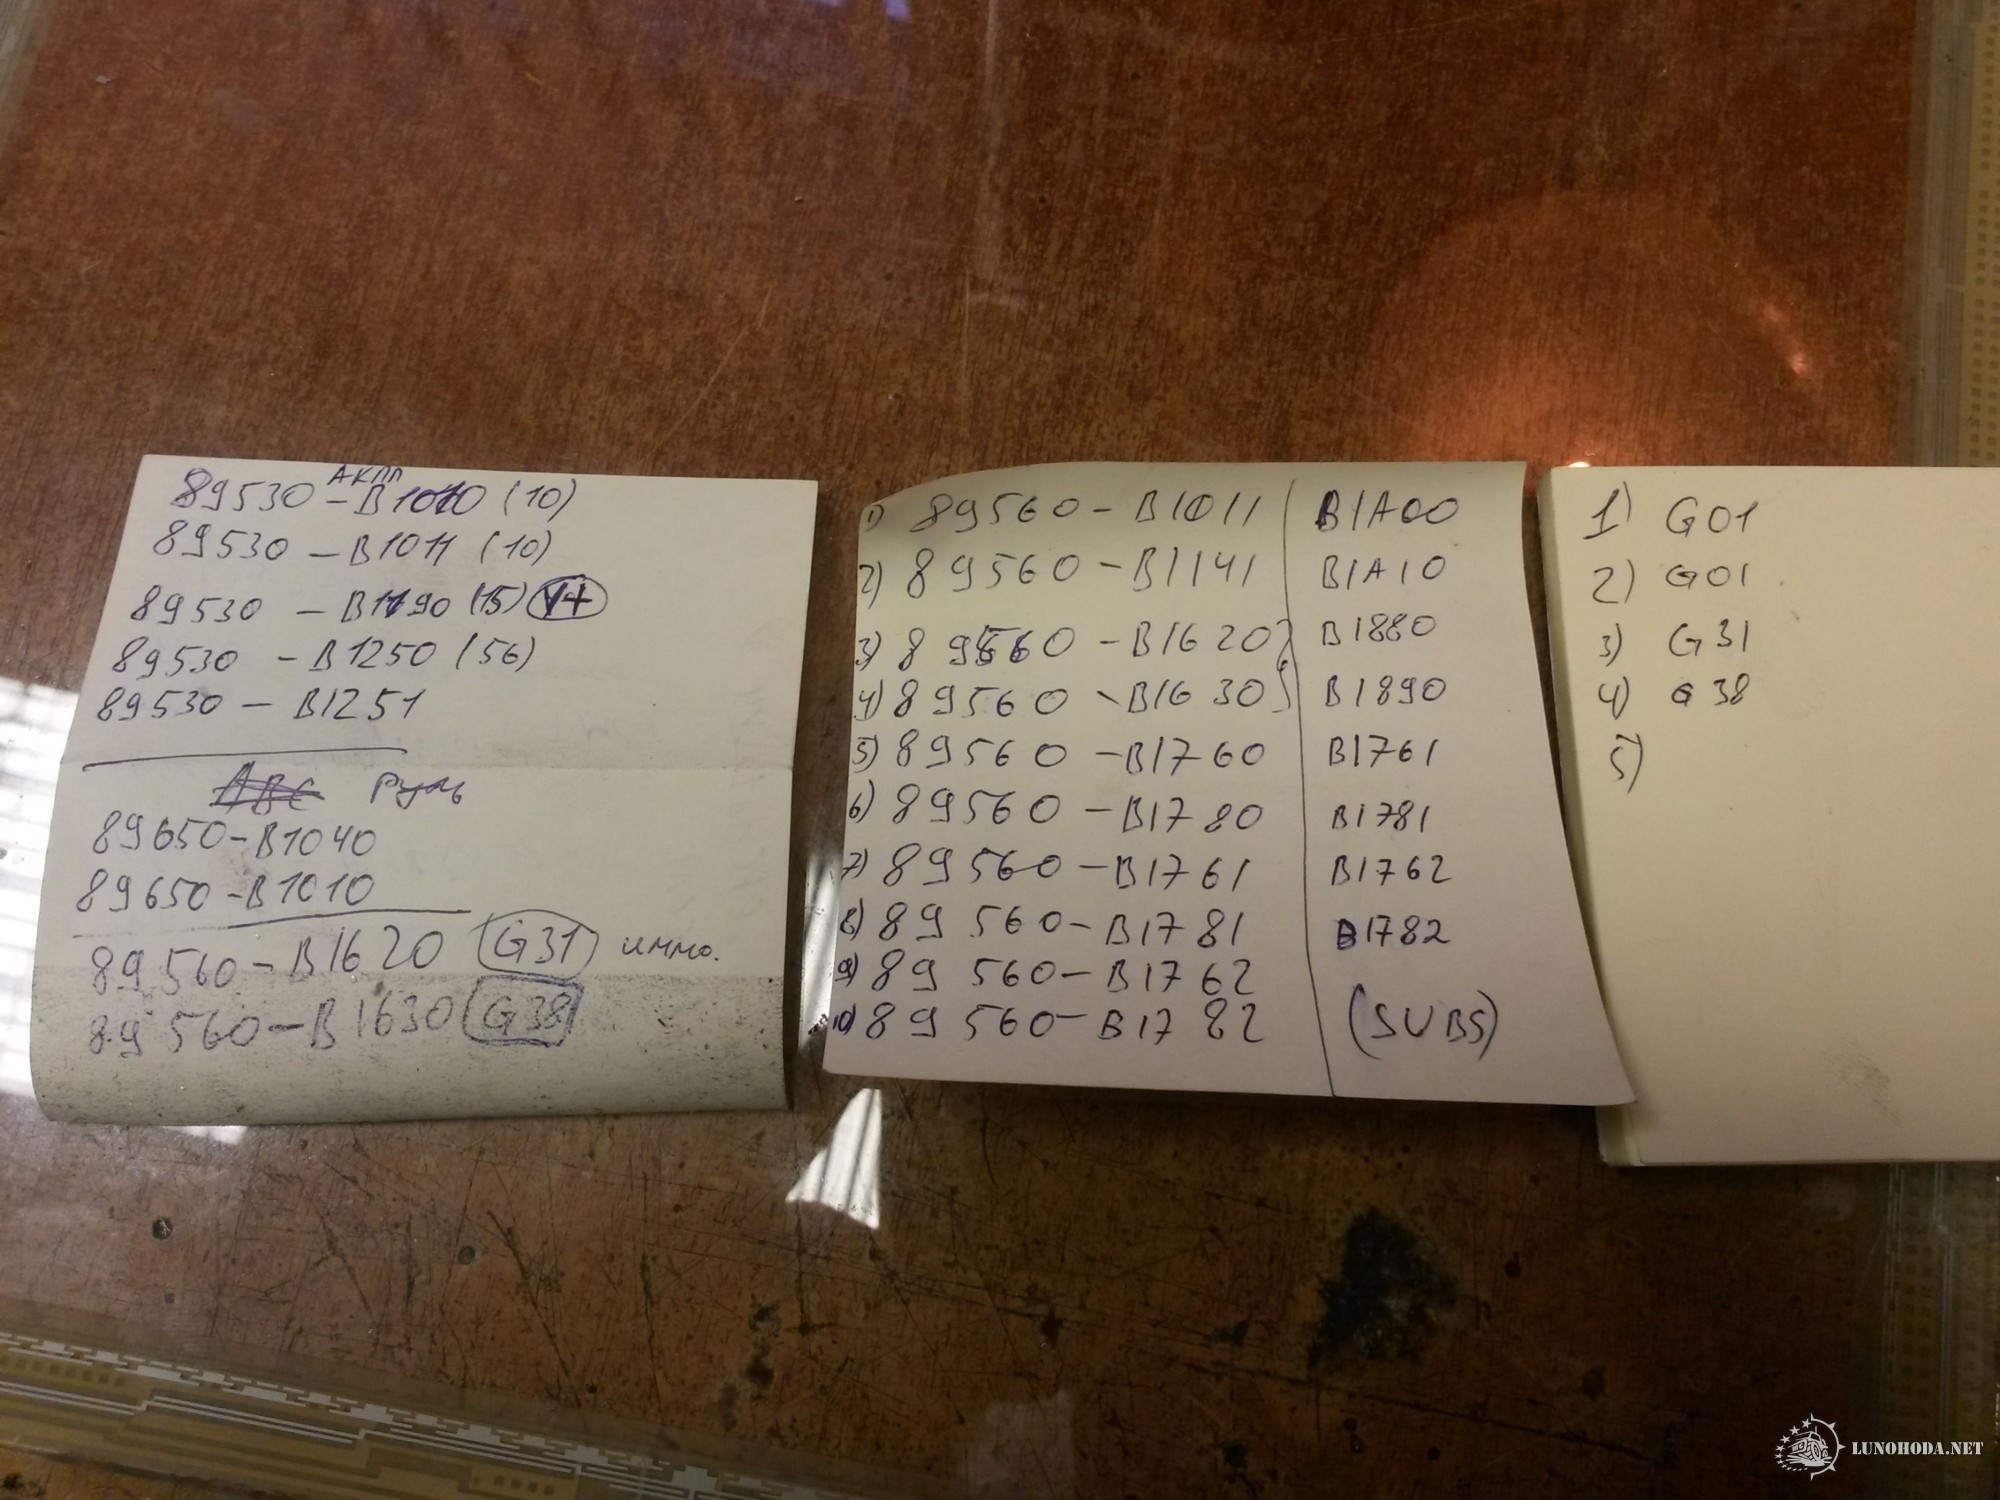 АКПП
89530 - B1010 (10)
89530 - B1011 (10)
89530 - B1190 (15) V+
89530 - B1250 (56)
89530 - B1251
АВС Руль
89650 - B1040
89650 - B1010
89560 - B1620 G31 иммо.
89560 - B1630 G38
1) 89560 - B1011 B1A00
2) 89560 - B1141 B1A10
3) 89560 - B1620 B1880
4) 89560 - B1630 B1890
5) 89560 - B1760 B1761
6) 89560 - B1780 B1781
7) 89560 - B1761 B1762
8) 89560 - B1781 B1782
9) 89560 - B1762
10) 89560 - B1782 (SUBS)
1) G01
2) G01
3) G31
4) G38
5)
LUNOHODA.NET